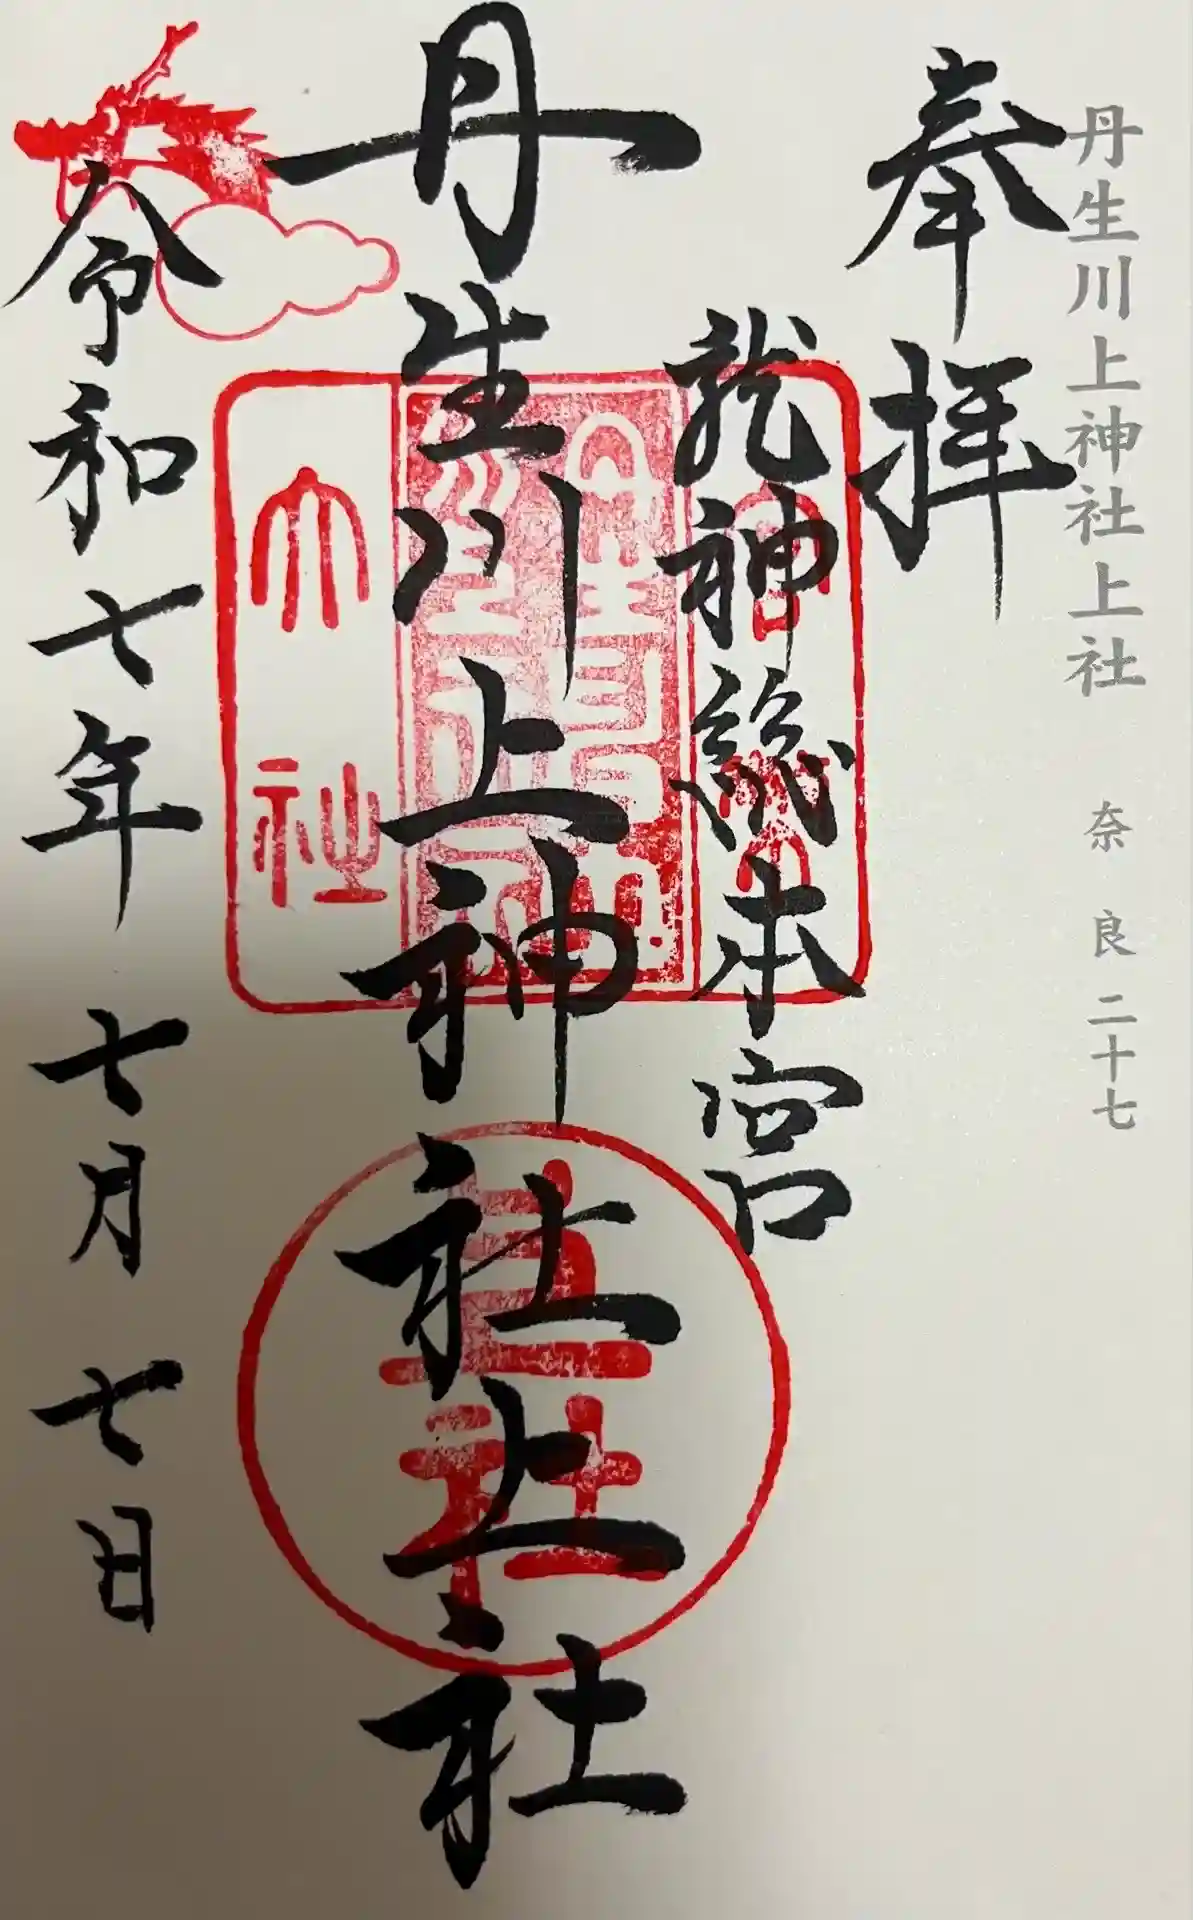 丹生川上神社上社 奈良二十七
奉拝
龍神総本宮
丹生川上神社上社
令和七年七月七日
大社
上社